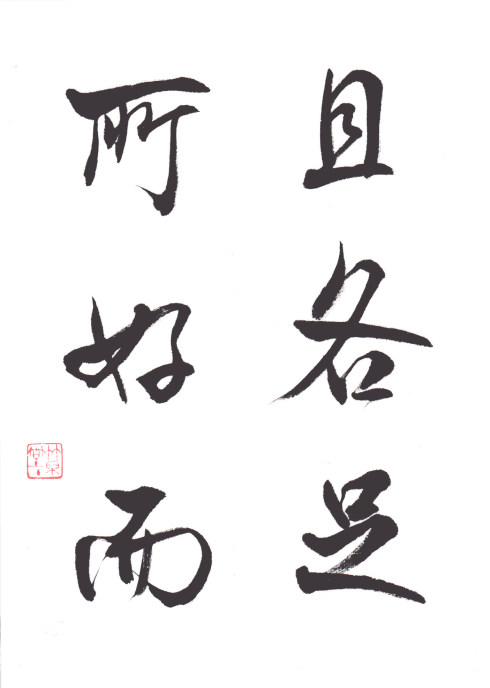 且各足
所好而